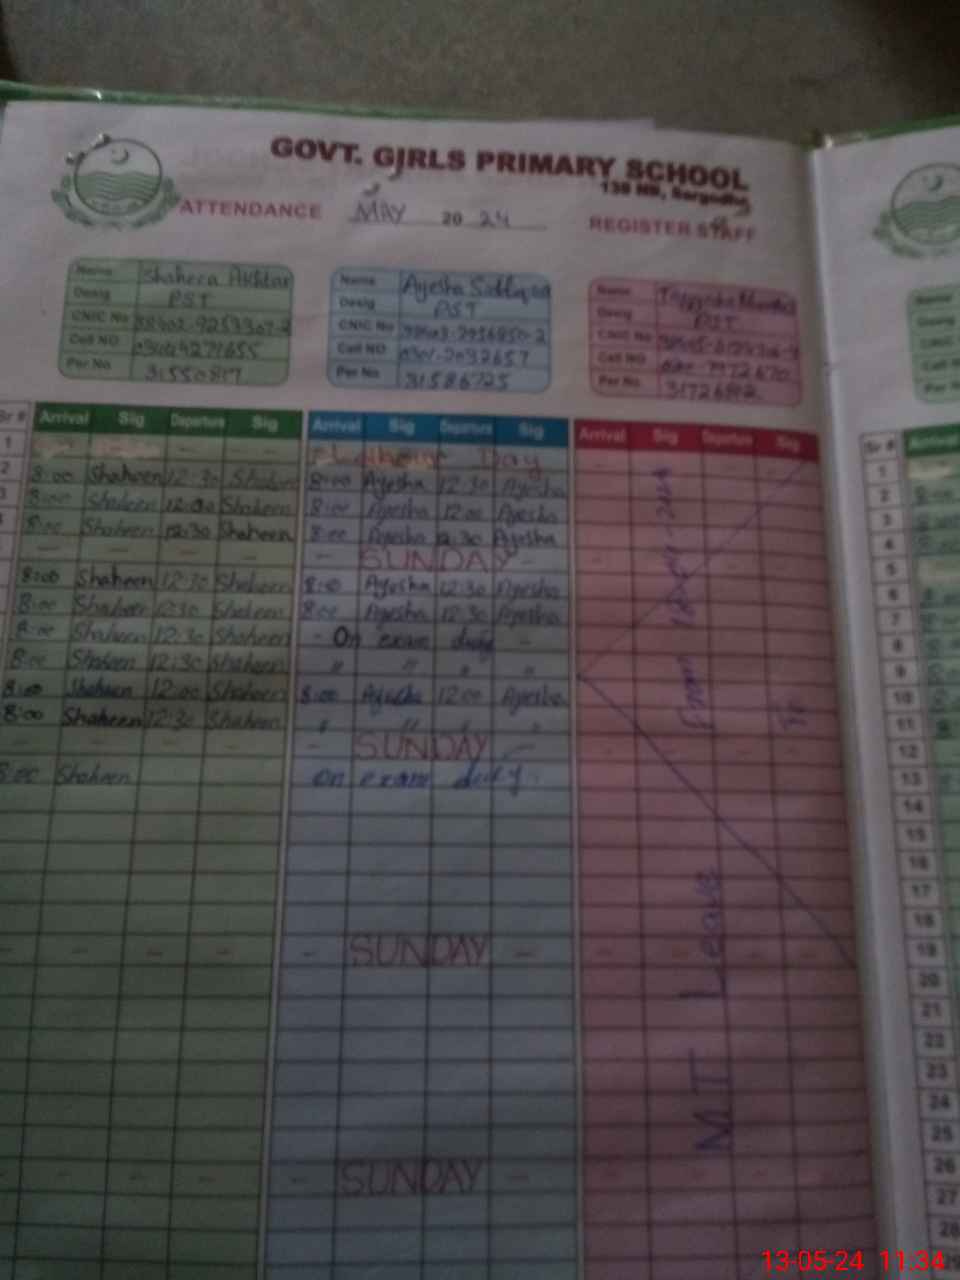 GOVT. GIRLS PRIMARY SCHOOL
138 NB, Sargodha
ATTENDANCE MAY 2024 REGISTER STAFF
Name Shaheen Akhtar
Desig PST
CNIC No
Cell NO
Per No
Name Ayesha Siddiqa
Desig PST
CNIC No
Cell NO 0301-2032657
Per No 31586725
Name
Desig PST
CNIC No
Cell NO
Per No
Sr # Arrival Sig Departure Sig Arrival Sig Departure Sig Arrival Sig Departure Sig
1 Labour Day
2 8:00 Shaheen 12:30 Shaheen 8:00 Ayesha 12:30 Ayesha
3 8:00 Shaheen 12:00 Shaheen 8:00 Ayesha 12:00 Ayesha
8:00 Shaheen 12:30 Shaheen 8:00 Ayesha 12:30 Ayesha
- - - - - SUNDAY -
8:00 Shaheen 12:30 Shaheen 8:00 Ayesha 12:30 Ayesha
8:00 Shaheen 12:30 Shaheen 8:00 Ayesha 12:30 Ayesha
8:00 Shaheen 12:30 Shaheen - On exam duty -
8:00 Shaheen 12:30 Shaheen " " " "
8:00 Shaheen 12:00 Shaheen 8:00 Ayesha 12:00 Ayesha
8:00 Shaheen 12:30 Shaheen " " " "
- - - - - SUNDAY -
8:00 Shaheen On exam duty -
- - - - - SUNDAY - - - - -
- - - - - SUNDAY - - - - -
MIT Leave From
To
Sr # Arrival
1
2
3
4
5
6
7
8
9
10
11
12
13
14
15
16
17
18
19
20
21
22
23
24
25
26
27
28
Name
Desig
CNIC
Cell
Per N
13-05-24 11:34